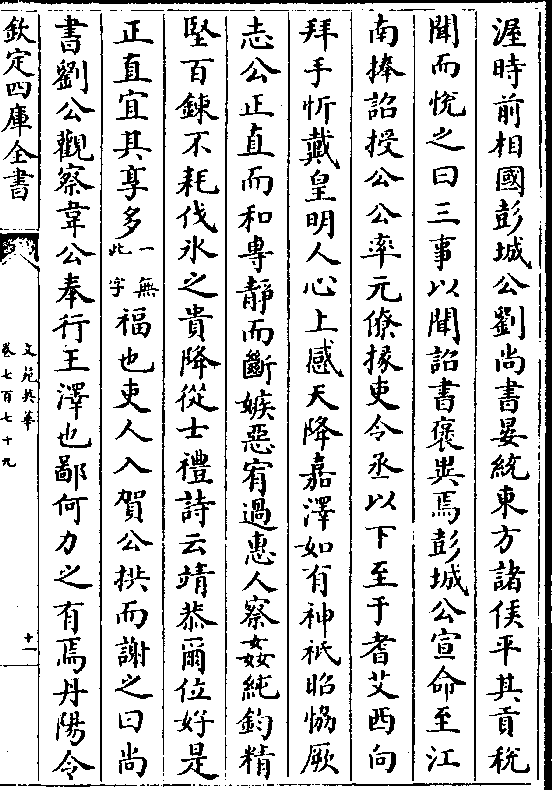 渥時前相國彭城公劉尚書晏統東方諸侯平其貢稅
聞而悅之曰三事以聞詔書褒異焉彭城公宣命至江
南捧詔授公公率元僚掾吏令丞以下至于耆艾西向
拜手忻戴皇明人心上感天降嘉澤如有神祇昭恊厥
志公正直而和專靜而斷嫉惡宥過惠人察姦純鈞精
堅百鍊不耗伐氷之貴降從士禮詩云靖恭爾位好是
正直宜其享多一無此字福也吏人入賀公拱而謝之曰尚
書劉公觀察韋公奉行王澤也鄙何力之有焉丹陽令
欽定四庫全書
文苑英華
卷七百七十九
十一